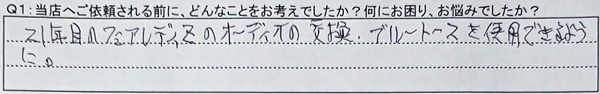 Q1：当店へご依頼される前に、どんなことをお考えでしたか？何にお困り、お悩みでしたか？
21年目のフェアレディZのオーディオの交換．ブルートースを使用できるよう
に。